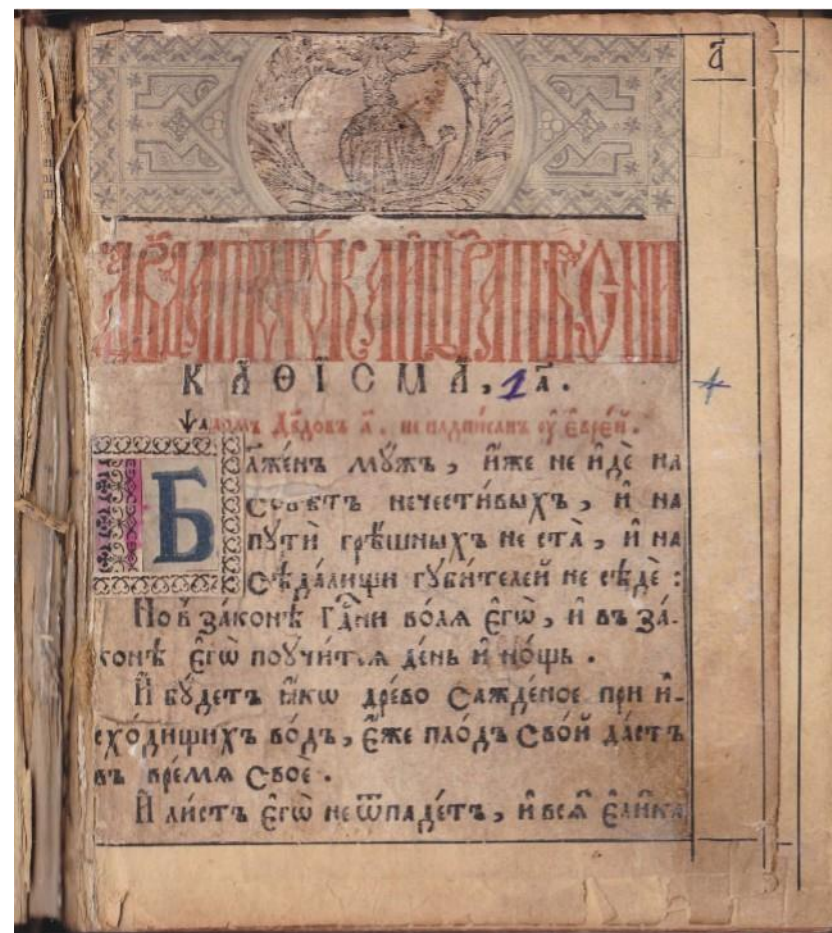 а҃
Дв҃да прⷪ҇рока и҆ цр҃ѧ пѣ́сни
КАѲІСМА, 1 а҃.
Ѱало́мъ Дв҃довъ а҃. не надпи́санъ ᲂу҆ Е҆вре́й.
Бл҃же́нъ мꙋ́жъ, и҆́же не и҆́де на
совѣ́тъ нечести́выхъ, и҆ на
пꙋти̇̀ грѣ́шныхъ не ста̀, и҆ на
сѣда́лищи гꙋби́телей не сѣ́де :
Но в̾ зако́нѣ гд҇ни во́лѧ є҆гѡ̀, и҆ въ за-
конѣ є҆гѡ̀ поꙋчи́тсѧ де́нь и҆ но́щь .
И҆ бꙋ́детъ ꙗ҆́кѡ дре́во сажде́ное при и҆-
схо́дищихъ во́дъ, є҆́же пло́дъ сво́й да́стъ
въ вре́мѧ своѐ .
И҆ ли́стъ є҆гѡ̀ не ѿпаде́тъ, и҆ всѧ̑ є҆ли́ка